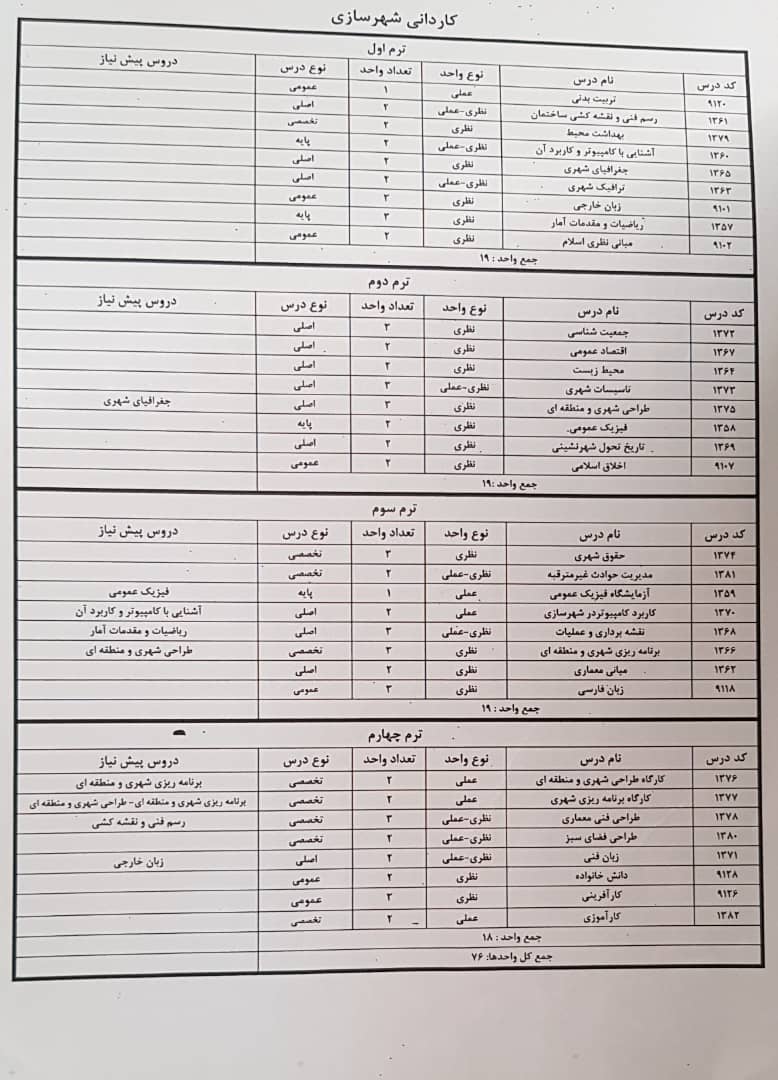 کاردانی شهرسازی
ترم اول
کد درس نام درس نوع واحد تعداد واحد نوع درس دروس پیش نیاز
۹۱۲۰ تربیت بدنی عملی ۱ عمومی
۱۳۶۱ رسم فنی و نقشه کشی ساختمان نظری-عملی ۲ اصلی
۱۳۷۹ بهداشت محیط نظری ۲ تخصصی
۱۳۶۰ آشنایی با کامپیوتر و کاربرد آن نظری-عملی ۲ پایه
۱۳۶۵ جغرافیای شهری نظری ۲ اصلی
۱۳۶۳ ترافیک شهری نظری-عملی ۲ اصلی
۹۱۰۱ زبان خارجی نظری ۳ عمومی
۱۳۵۷ ریاضیات و مقدمات آمار نظری ۳ پایه
۹۱۰۲ مبانی نظری اسلام نظری ۲ عمومی
جمع واحد : ۱۹
ترم دوم
کد درس نام درس نوع واحد تعداد واحد نوع درس دروس پیش نیاز
۱۳۷۲ جمعیت شناسی نظری ۳ اصلی
۱۳۶۷ اقتصاد عمومی نظری ۲ اصلی
۱۳۶۴ محیط زیست نظری ۲ اصلی
۱۳۷۳ تاسیسات شهری نظری-عملی ۳ اصلی
۱۳۷۵ طراحی شهری و منطقه ای نظری ۳ اصلی جغرافیای شهری
۱۳۵۸ فیزیک عمومی نظری ۲ پایه
۱۳۶۹ تاریخ تحول شهرنشینی نظری ۲ اصلی
۹۱۰۷ اخلاق اسلامی نظری ۲ عمومی
جمع واحد :۱۹
ترم سوم
کد درس نام درس نوع واحد تعداد واحد نوع درس دروس پیش نیاز
۱۳۷۴ حقوق شهری نظری ۳ تخصصی
۱۳۸۱ مدیریت حوادث غیرمترقبه نظری-عملی ۲ تخصصی
۱۳۵۹ آزمایشگاه فیزیک عمومی عملی ۱ پایه فیزیک عمومی
۱۳۷۰ کاربرد کامپیوتردر شهرسازی عملی ۲ اصلی آشنایی با کامپیوتر و کاربرد آن
۱۳۶۸ نقشه برداری و عملیات نظری-عملی ۳ اصلی ریاضیات و مقدمات آمار
۱۳۶۶ برنامه ریزی شهری و منطقه ای نظری ۳ تخصصی طراحی شهری و منطقه ای
۱۳۶۲ مبانی معماری نظری ۲ اصلی
۹۱۱۸ زبان فارسی نظری ۳ عمومی
جمع واحد : ۱۹
ترم چهارم
کد درس نام درس نوع واحد تعداد واحد نوع درس دروس پیش نیاز
۱۳۷۶ کارگاه طراحی شهری و منطقه ای عملی ۲ تخصصی برنامه ریزی شهری و منطقه ای
۱۳۷۷ کارگاه برنامه ریزی شهری عملی ۲ تخصصی برنامه ریزی شهری و منطقه ای- طراحی شهری و منطقه ای
۱۳۷۸ طراحی فنی معماری نظری-عملی ۳ تخصصی رسم فنی و نقشه کشی
۱۳۸۰ طراحی فضای سبز نظری-عملی ۲ تخصصی
۱۳۷۱ زبان فنی نظری-عملی ۲ اصلی زبان خارجی
۹۱۲۸ دانش خانواده نظری ۲ عمومی
۹۱۲۶ کارآفرینی نظری ۳ عمومی
۱۳۸۲ کارآموزی عملی ۲ تخصصی
جمع واحد : ۱۸
جمع کل واحدها: ۷۶